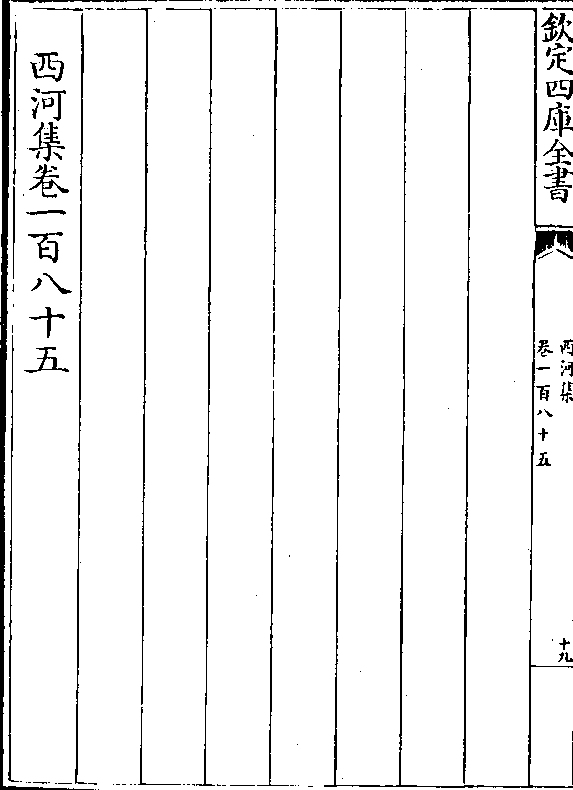 欽定四庫全書
西河集
卷一百八十五
十九
西河集卷一百八十五